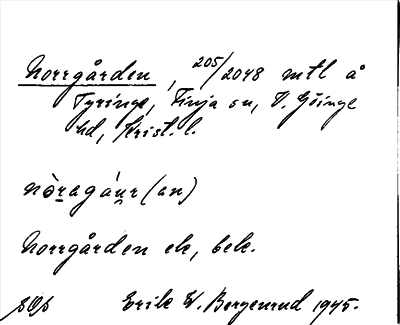 Norrgården, 205/2048 mtl å
Tyringe, Finja sn, V. Göinge
hd, Krist. l.
nòragáụr (an)
Norrgården ek, bek.
Erik W. Bergenrud 1945.